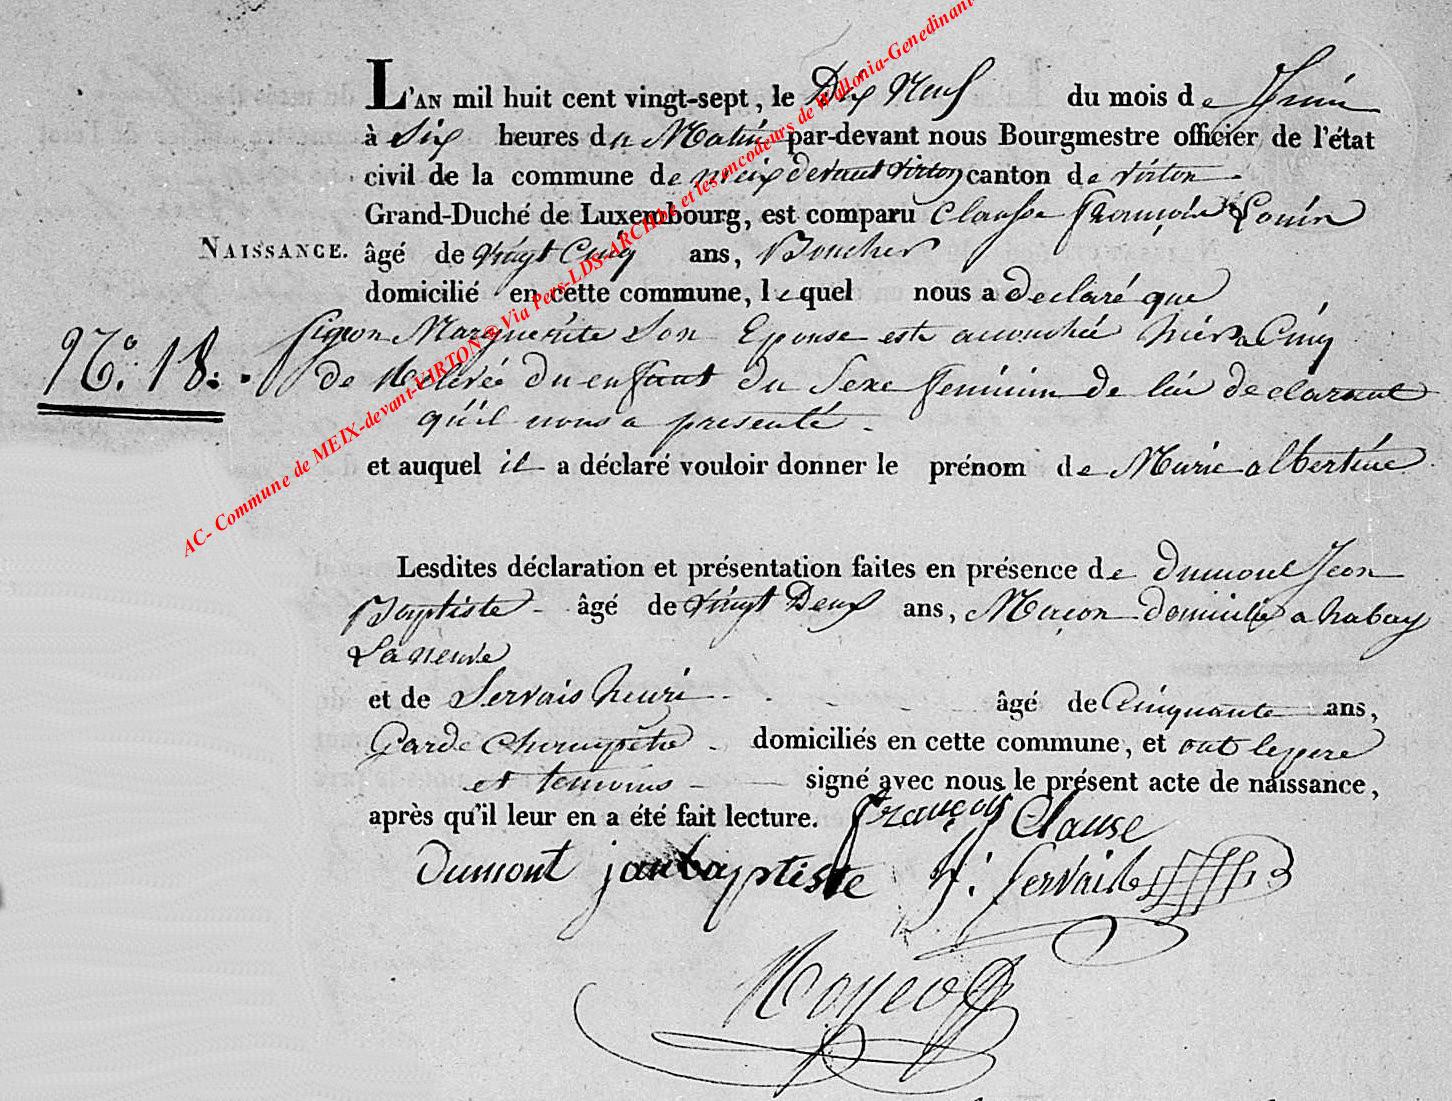 L'AN mil huit cent vingt-sept, le Dix Neuf du mois de Juin
à Six heures du Matin par-devant nous Bourgmestre officier de l'état
civil de la commune de meix devant virton canton de virton
Grand-Duché de Luxembourg, est comparu Clausse François Louis
NAISSANCE. âgé de vingt Cinq ans, Boucher
domicilié en cette commune, lequel nous a declaré que
N° 18. Signon Marguerite Son Epouse est accouchée hier a Cinq
de Relevée du enfant du Sexe feminin de lui declarant
qu'il nous a presenté
et auquel il a déclaré vouloir donner le prénom de Marie albertine
Lesdites déclaration et présentation faites en présence de dumont Jean
Baptiste âgé de vingt Deux ans, Maçon domicilié a habay
La neuve
et de Servais henri âgé de Cinquante ans,
Garde Champetre domiciliés en cette commune, et ont les pere
et temoins signé avec nous le présent acte de naissance,
après qu'il leur en a été fait lecture. François Clause
Dumont janbaptiste h. Servais
AC- Commune de MEIX-devant-VIRTON ® Via Pers-LDS-ARCHbe et les encodeurs de Wallonia-Genedinant